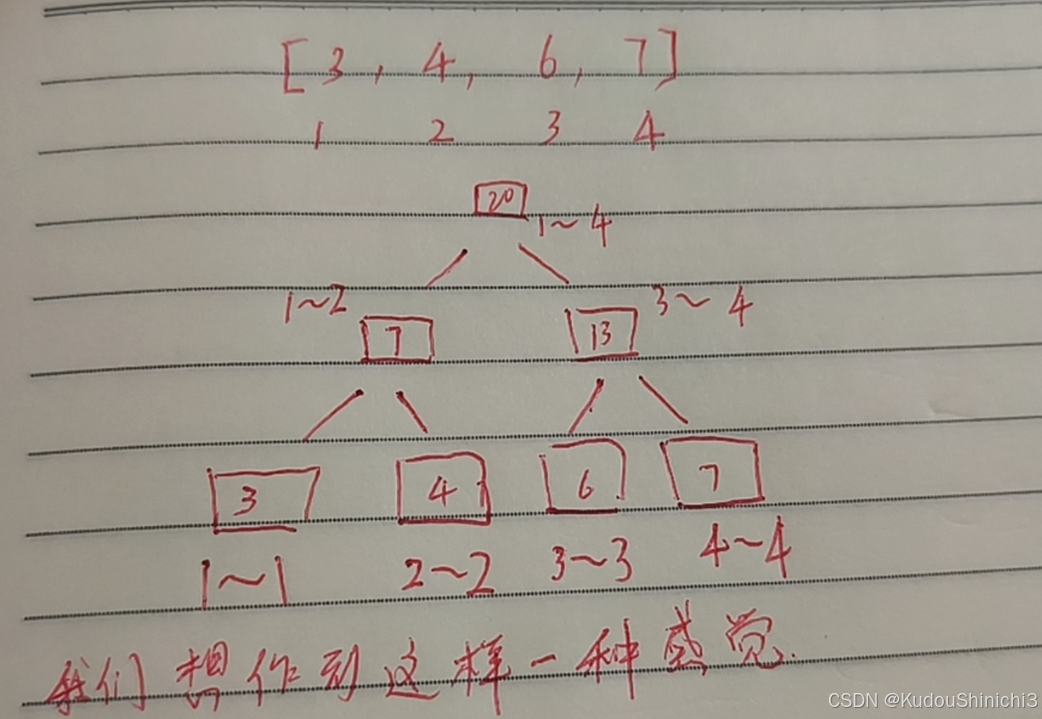 [3, 4, 6, 7]
1 2 3 4
20
1~4
1~2
3~4
7
13
3
4
6
7
1~1
2~2
3~3
4~4
我们想作到这样一种感觉.
CSDN @KudouShinichi3